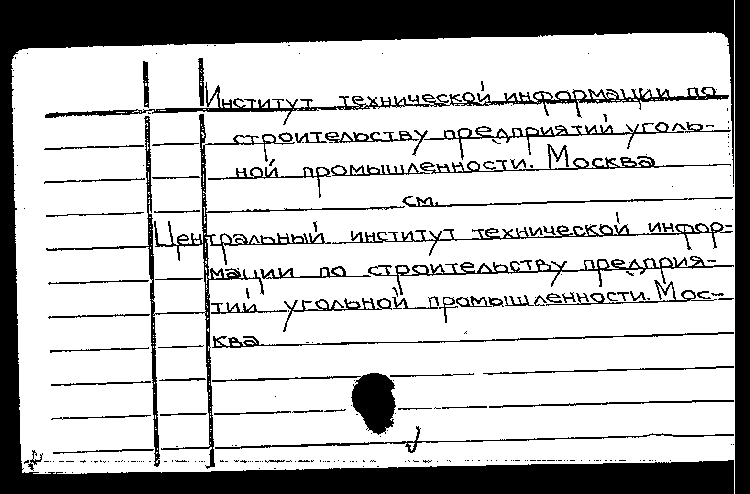 Институт технической информации по
строительству предприятий уголь-
ной промышленности. Москва
см.
Центральный институт технической инфор-
мации по строительству предприя-
тий угольной промышленности. Мос-
ква